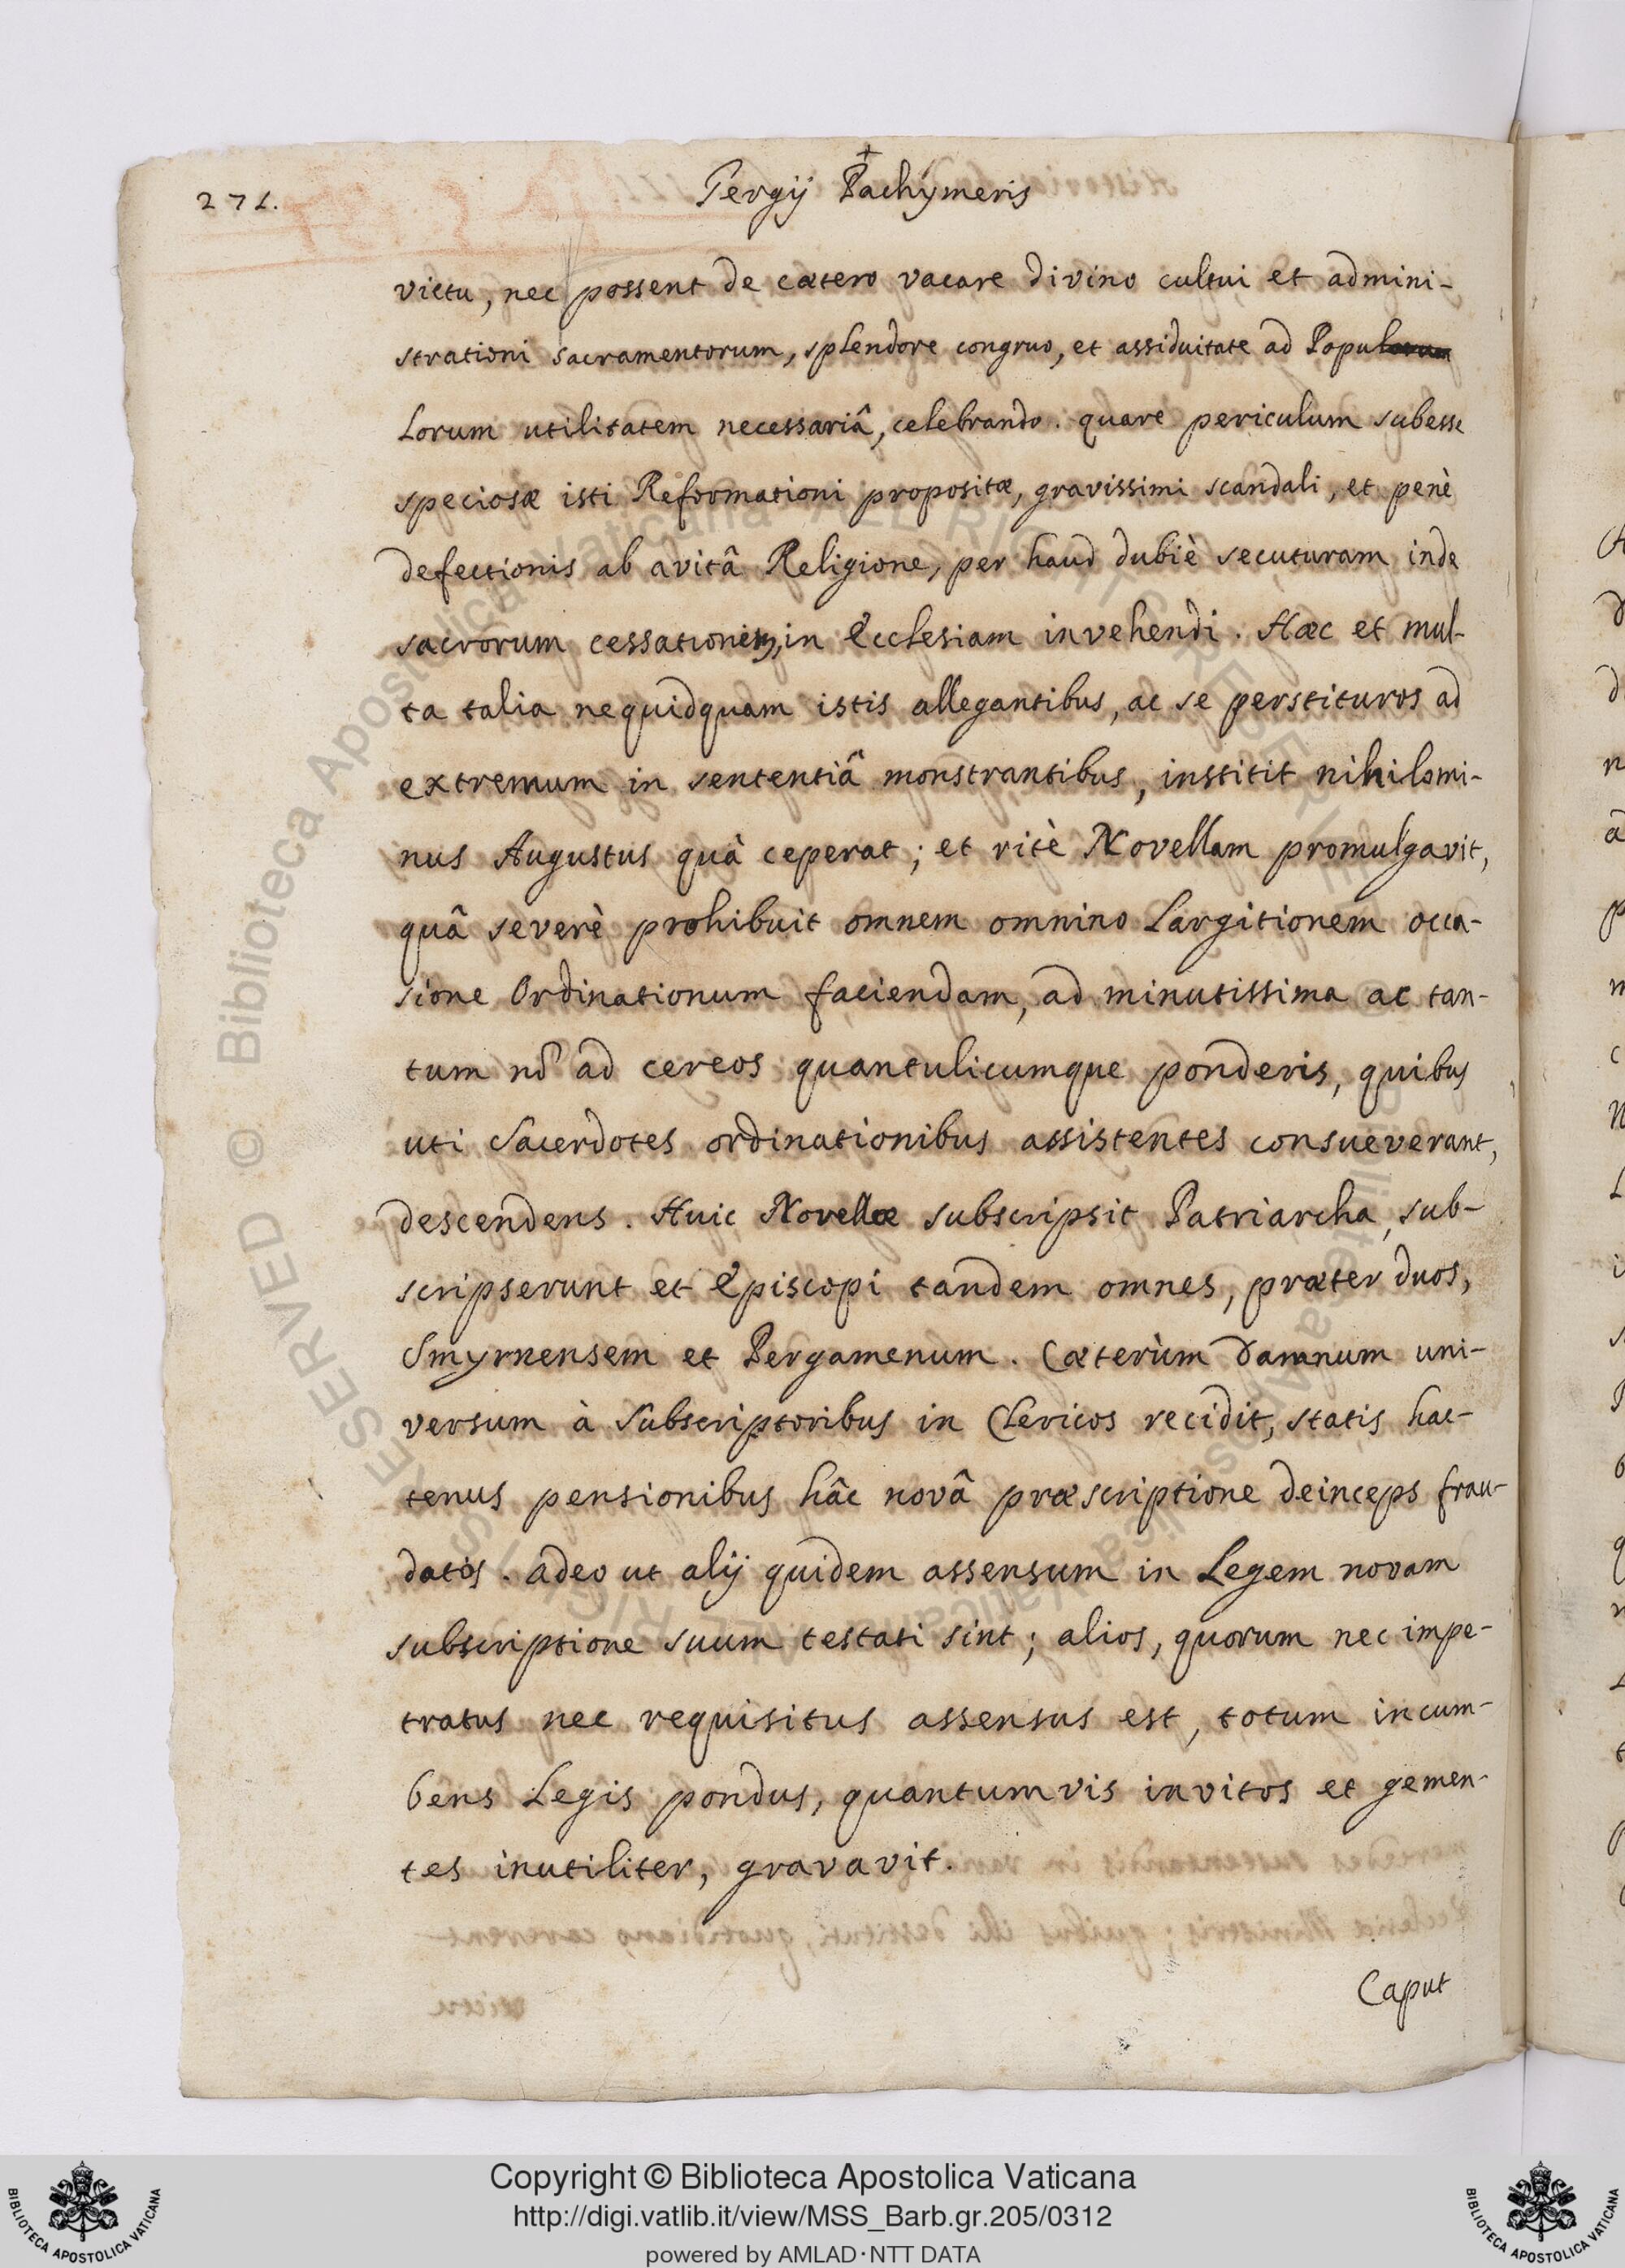 271.
Gergij Pachymeris
victu, nec possent de cætero vacare divino cultui et admini-
strationi sacramentorum, splendore congruo, et assiduitate ad Popu
lorum utilitatem necessariâ, celebrando. quare periculum subesse
speciosæ isti Reformationi propositæ, gravissimi scandali, et penè
defectionis ab avitâ Religione, per haud dubiè secuturam inde
sacrorum cessationem, in Ecclesiam invehendi. Hæc et mul-
ta talia nequidquam istis allegantibus, ac se perstituros ad
extremum in sententiâ monstrantibus, institit nihilomi-
nus Augustus quà ceperat; et ritè Novellam promulgavit,
quâ severè prohibuit omnem omnino Largitionem occa-
sione Ordinationum faciendam, ad minutissima ac tan-
tum nõ ad cereos quantulicumque ponderis, quibus
uti Sacerdotes ordinationibus assistentes consueverant,
descendens. Huic Novellæ subscripsit Patriarcha, sub-
scripserunt et Episcopi tandem omnes, præter duos,
Smyrnensem et Pergamenum. Cæterùm damnum uni-
versum à Subscriptoribus in Clericos recidit, statis hac-
tenus pensionibus hâc novâ præscriptione deinceps frau-
datos. adeo ut alij quidem assensum in Legem novam
subscriptione suum testati sint; alios, quorum nec impe-
tratus nec requisitus assensus est, totum incum-
bens Legis pondus, quantumvis invitos et gemen-
tes inutiliter, gravavit.
Caput
Copyright © Biblioteca Apostolica Vaticana
http://digi.vatlib.it/view/MSS_Barb.gr.205/0312
powered by AMLAD·NTT DATA